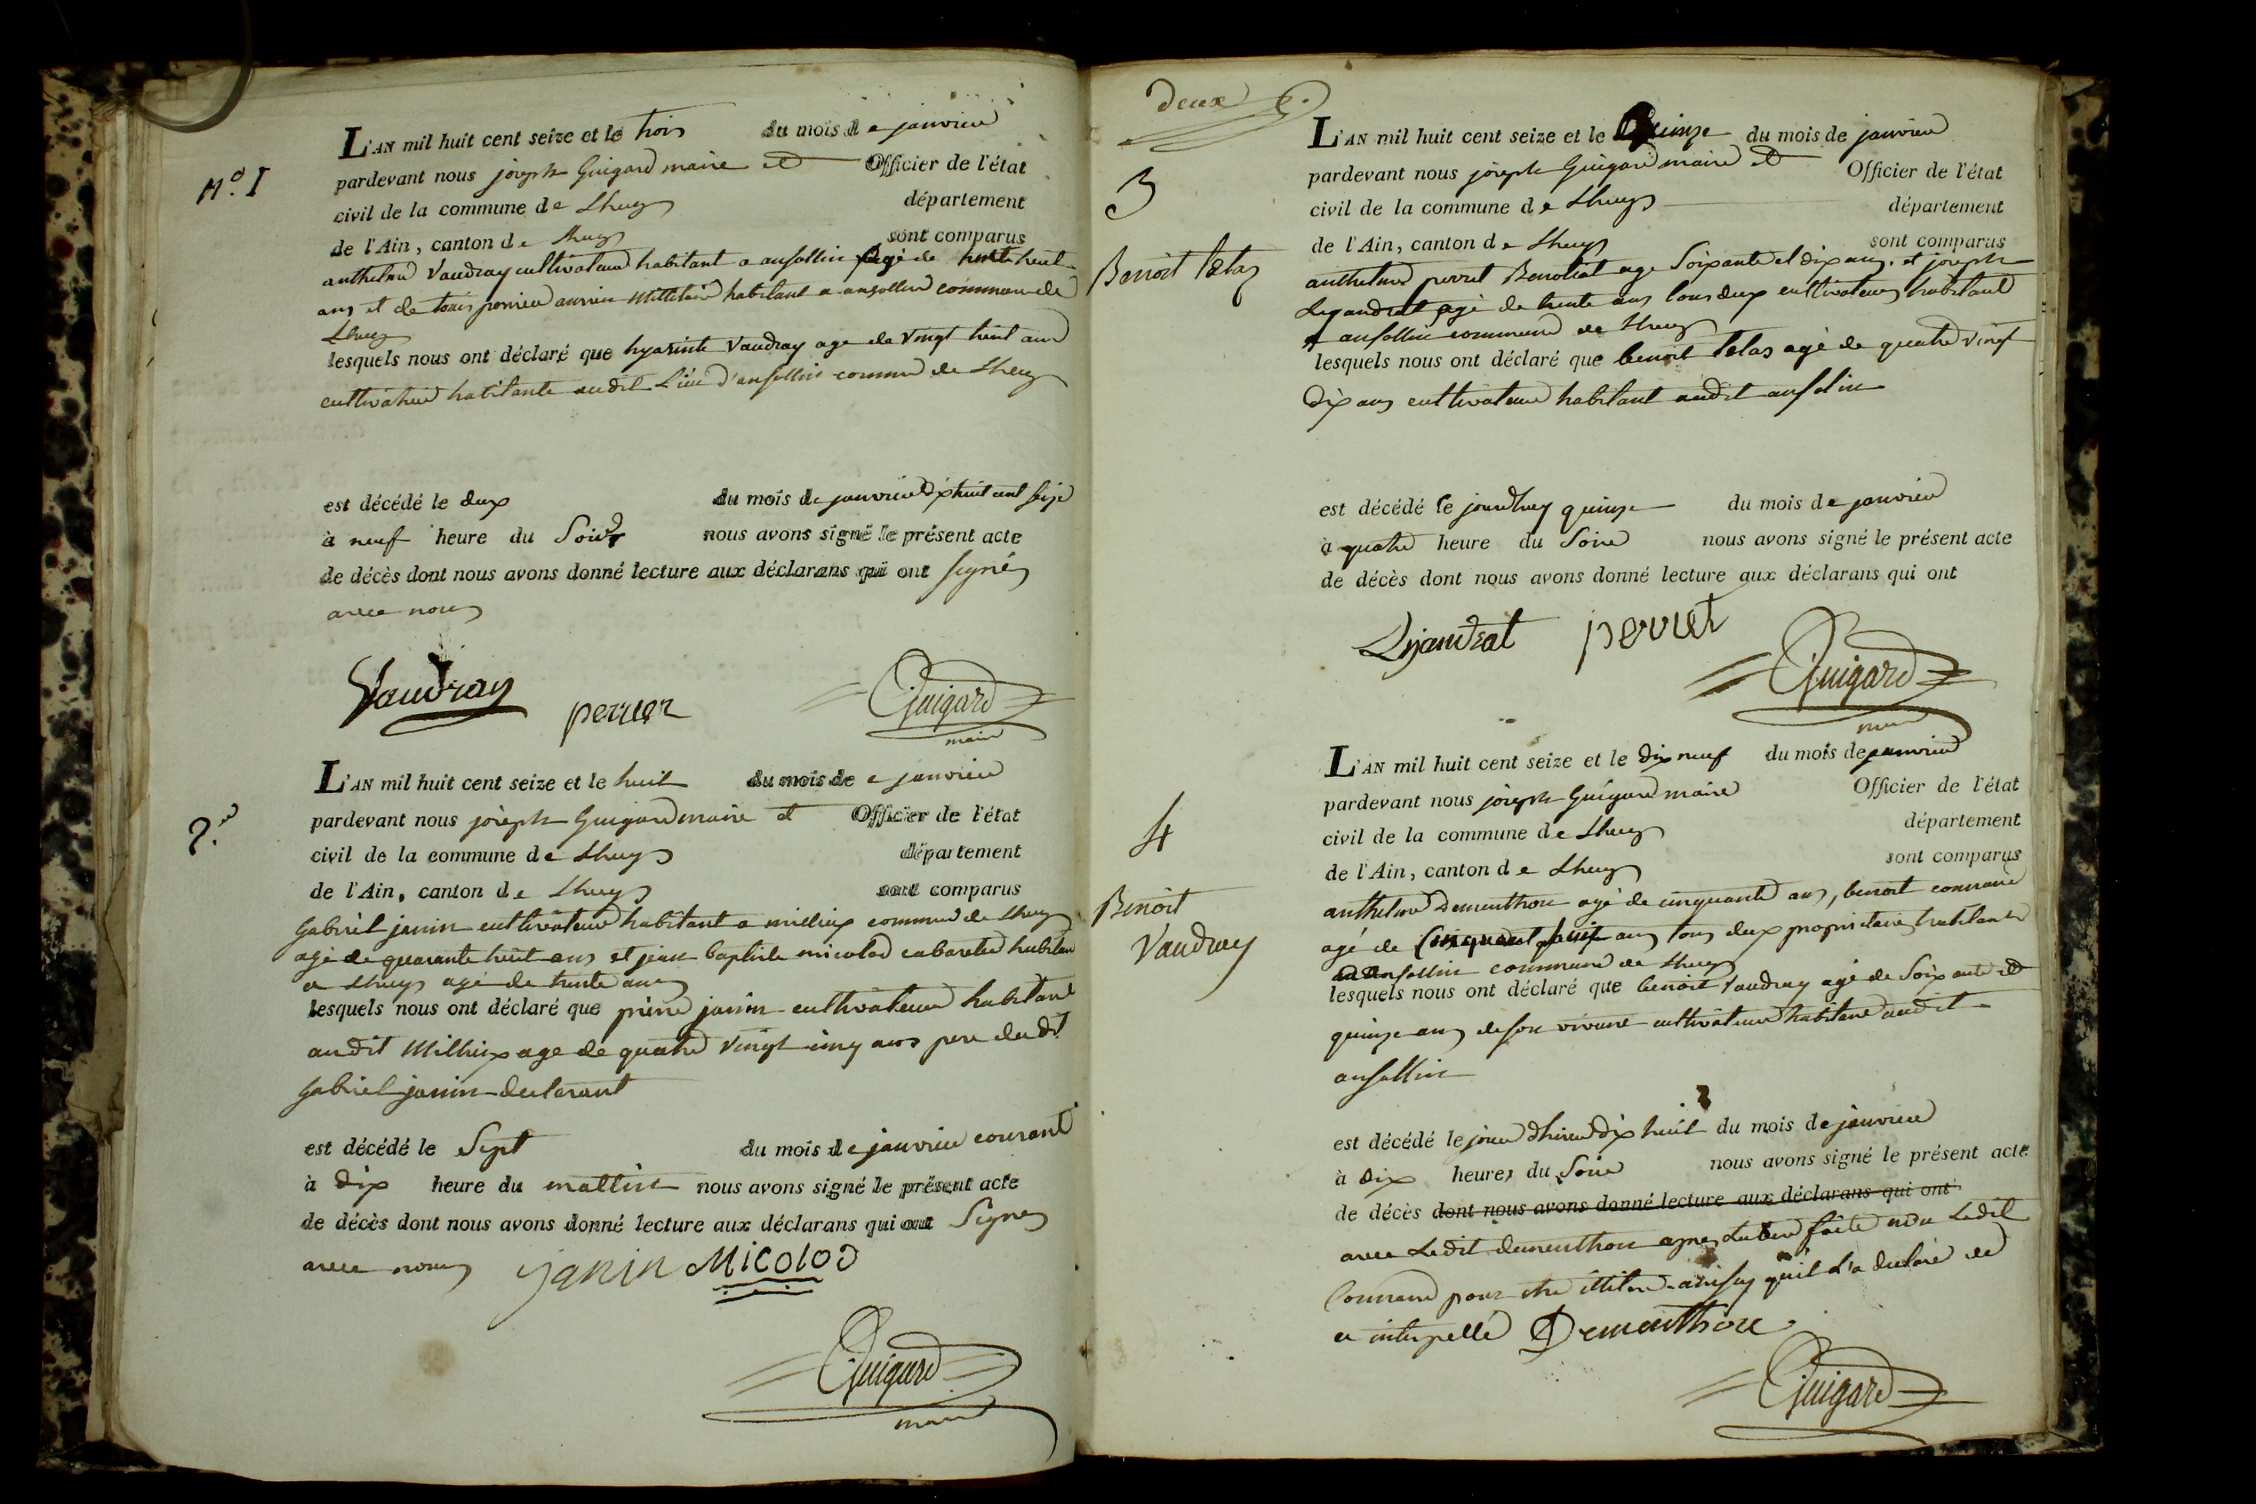 N.º 1
L'AN mil huit cent seize et le trois du mois de janvier
pardevant nous joseph Guigard maire et Officier de l'état
civil de la commune de Lhuys département
de l'Ain, canton de Lhuys sont comparus
anthelme Vaudray cultivateur habitant a ansollin agé de trente huit
ans et de perrier ancien militaire habitant a ansollin commune de
Lhuys
lesquels nous ont déclaré que hyasinte Vaudray age de vingt huit ans
cultivateur habitante audit Lieu d'ansollin commune de Lhuys
est décédé le deux du mois de janvier dix huit cent seize
à neuf heure du Soir nous avons signé le présent acte
de décès dont nous avons donné lecture aux déclarans qui ont signés
avec nous
Vaudray perrier Guigard
maire
2
L'AN mil huit cent seize et le huit du mois de janvier
pardevant nous joseph Guigard maire et Officier de l'état
civil de la commune de Lhuys département
de l'Ain, canton de Lhuys sont comparus
Gabriel janin cultivateur habitant a millieux commune de Lhuys
agé de quarante huit ans et jean baptiste micolod cabaretier habitant
a Lhuys agé de trente ans
lesquels nous ont déclaré que pierre janin cultivateur habitant
audit Millieux age de quatre vingt cinq ans pere dudt
Gabriel janin declarant
est décédé le Sept du mois de janvier courant
à dix heure du mattin nous avons signé le présent acte
de décès dont nous avons donné lecture aux déclarans qui ont Signes
avec nous janin Micolod
Guigard
maire
deux
3
Benoit Telas
L'AN mil huit cent seize et le Quinze du mois de janvier
pardevant nous joseph Guigard maire et Officier de l'état
civil de la commune de Lhuys département
de l'Ain, canton de Lhuys sont comparus
anthelme perret Benollat age Soixante et dix ans, et joseph
Lejandrat agé de trente ans tous deux cultivateurs habitant
a ansollin commune de Lhuys
lesquels nous ont déclaré que benoit Telas agé de quatre vingt
dix ans cultivateur habitant audit ansolin
est décédé le jourdhuy quinze du mois de janvier
à quatre heure du Soire nous avons signé le présent acte
de décès dont nous avons donné lecture aux déclarans qui ont
Lejandrat perret
Guigard
4
Benoit
Vaudray
L'AN mil huit cent seize et le dix neuf du mois de janvier
pardevant nous joseph Guigard maire Officier de l'état
civil de la commune de Lhuys département
de l'Ain, canton de Lhuys sont comparus
anthelme Dementhon agé de cinquante ans, benoit connand
agé de ans tous deux propriétaire habitants
ansollin commune de Lhuys
lesquels nous ont déclaré que benoit Vaudray agé de Soixante et
quinze ans de son vivant cultivateur habitant audit
ansollin
est décédé le jour dhier dix huit du mois de janvier
à dix heures du Soire nous avons signé le présent acte
de décès dont nous avons donné lecture aux déclarans qui ont
avec Ledit dementhon apres faite non Ledit
Connand pour etre qu'il l'a declaré de
ce interpellé Dementhon
Guigard